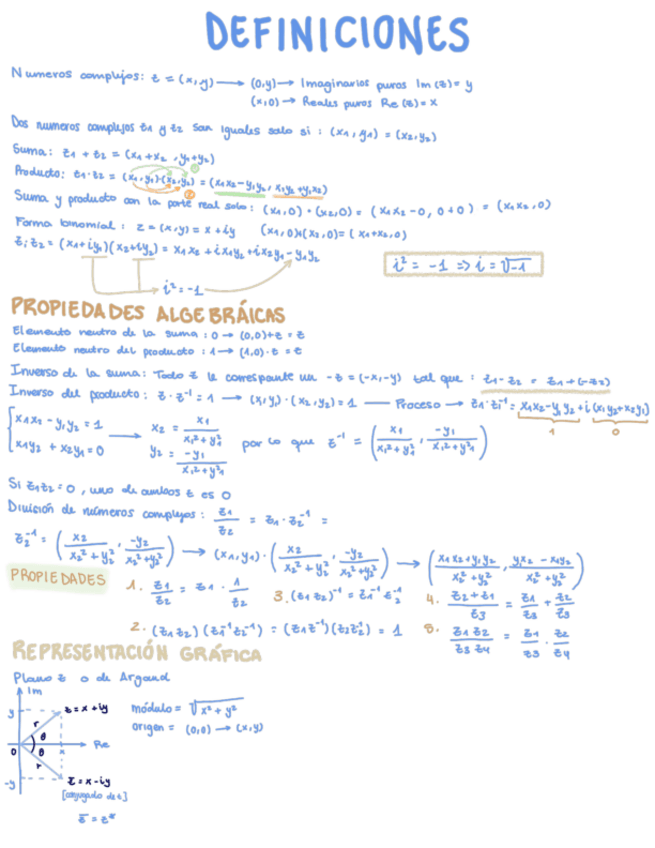 DEFINICIONES
Numeros complejos: z = (x,y) → (0,y) → Imaginarios puros Im (z) = y
(x,0) → Reales puros Re (z) = x
Dos numeros complejos z1 y z2 san iguales solo si : (x1, y1) = (x2, y2)
Suma: z1 + z2 = (x1+x2 , y1+y2)
Producto: z1·z2 = (x1, y1)·(x2, y2) = (x1x2 - y1y2, x1y2 + y1x2)
Suma y producto con la parte real solo: (x1,0) · (x2,0) = (x1x2 - 0, 0+0) = (x1x2, 0)
Forma binomial : z = (x,y) = x + iy (x1,0)+(x2,0) = (x1+x2,0)
z1z2 = (x1+iy1)(x2+iy2) = x1x2 + ix1y2 + ix2y1 - y1y2
i² = -1
i² = -1 => i = √-1
PROPIEDADES ALGEBRÁICAS
Elemento neutro de la suma : 0 → (0,0)+z = z
Elemento neutro del producto : 1 → (1,0) · z = z
Inverso de la suma: Todo z le corresponde un -z = (-x,-y) tal que : z1 - z2 = z1 + (-z2)
Inverso del producto: z · z⁻¹ = 1 → (x1,y1) · (x2,y2) = 1 — Proceso → z1·z1⁻¹ = x1x2 - y1y2 + i (x1y2 + x2y1)
1 0
{x1x2 - y1y2 = 1 → x2 = x1/(x1² + y1²)
x1y2 + x2y1 = 0 y2 = -y1/(x1² + y1²) por lo que z⁻¹ = (x1/(x1² + y1²), -y1/(x1² + y1²))
Si z1z2 = 0 , uno de ambos z es 0
División de números complejos : z1/z2 = z1 · z2⁻¹ =
z2⁻¹ = (x2/(x2² + y2²), -y2/(x2² + y2²)) → (x1, y1) · (x2/(x2² + y2²), -y2/(x2² + y2²)) → ((x1x2 + y1y2)/(x2² + y2²), (y1x2 - x1y2)/(x2² + y2²))
PROPIEDADES
1. z1/z2 = z1 · 1/z2
3. (z1z2)⁻¹ = z1⁻¹ z2⁻¹
4. (z2 + z1)/z3 = z1/z3 + z2/z3
2. (z1z2)(z1⁻¹z2⁻¹) = (z1z⁻¹)(z2z2⁻¹) = 1
5. z1z2/z3z4 = z1/z3 · z2/z4
REPRESENTACIÓN GRÁFICA
Plano z o de Argand
Im
y
z = x + iy
módulo = √x² + y²
origen = (0,0) → (x,y)
r
θ
0 x Re
θ
r
-y
z̄ = x - iy
[conjugado de z]
z̄ = z*